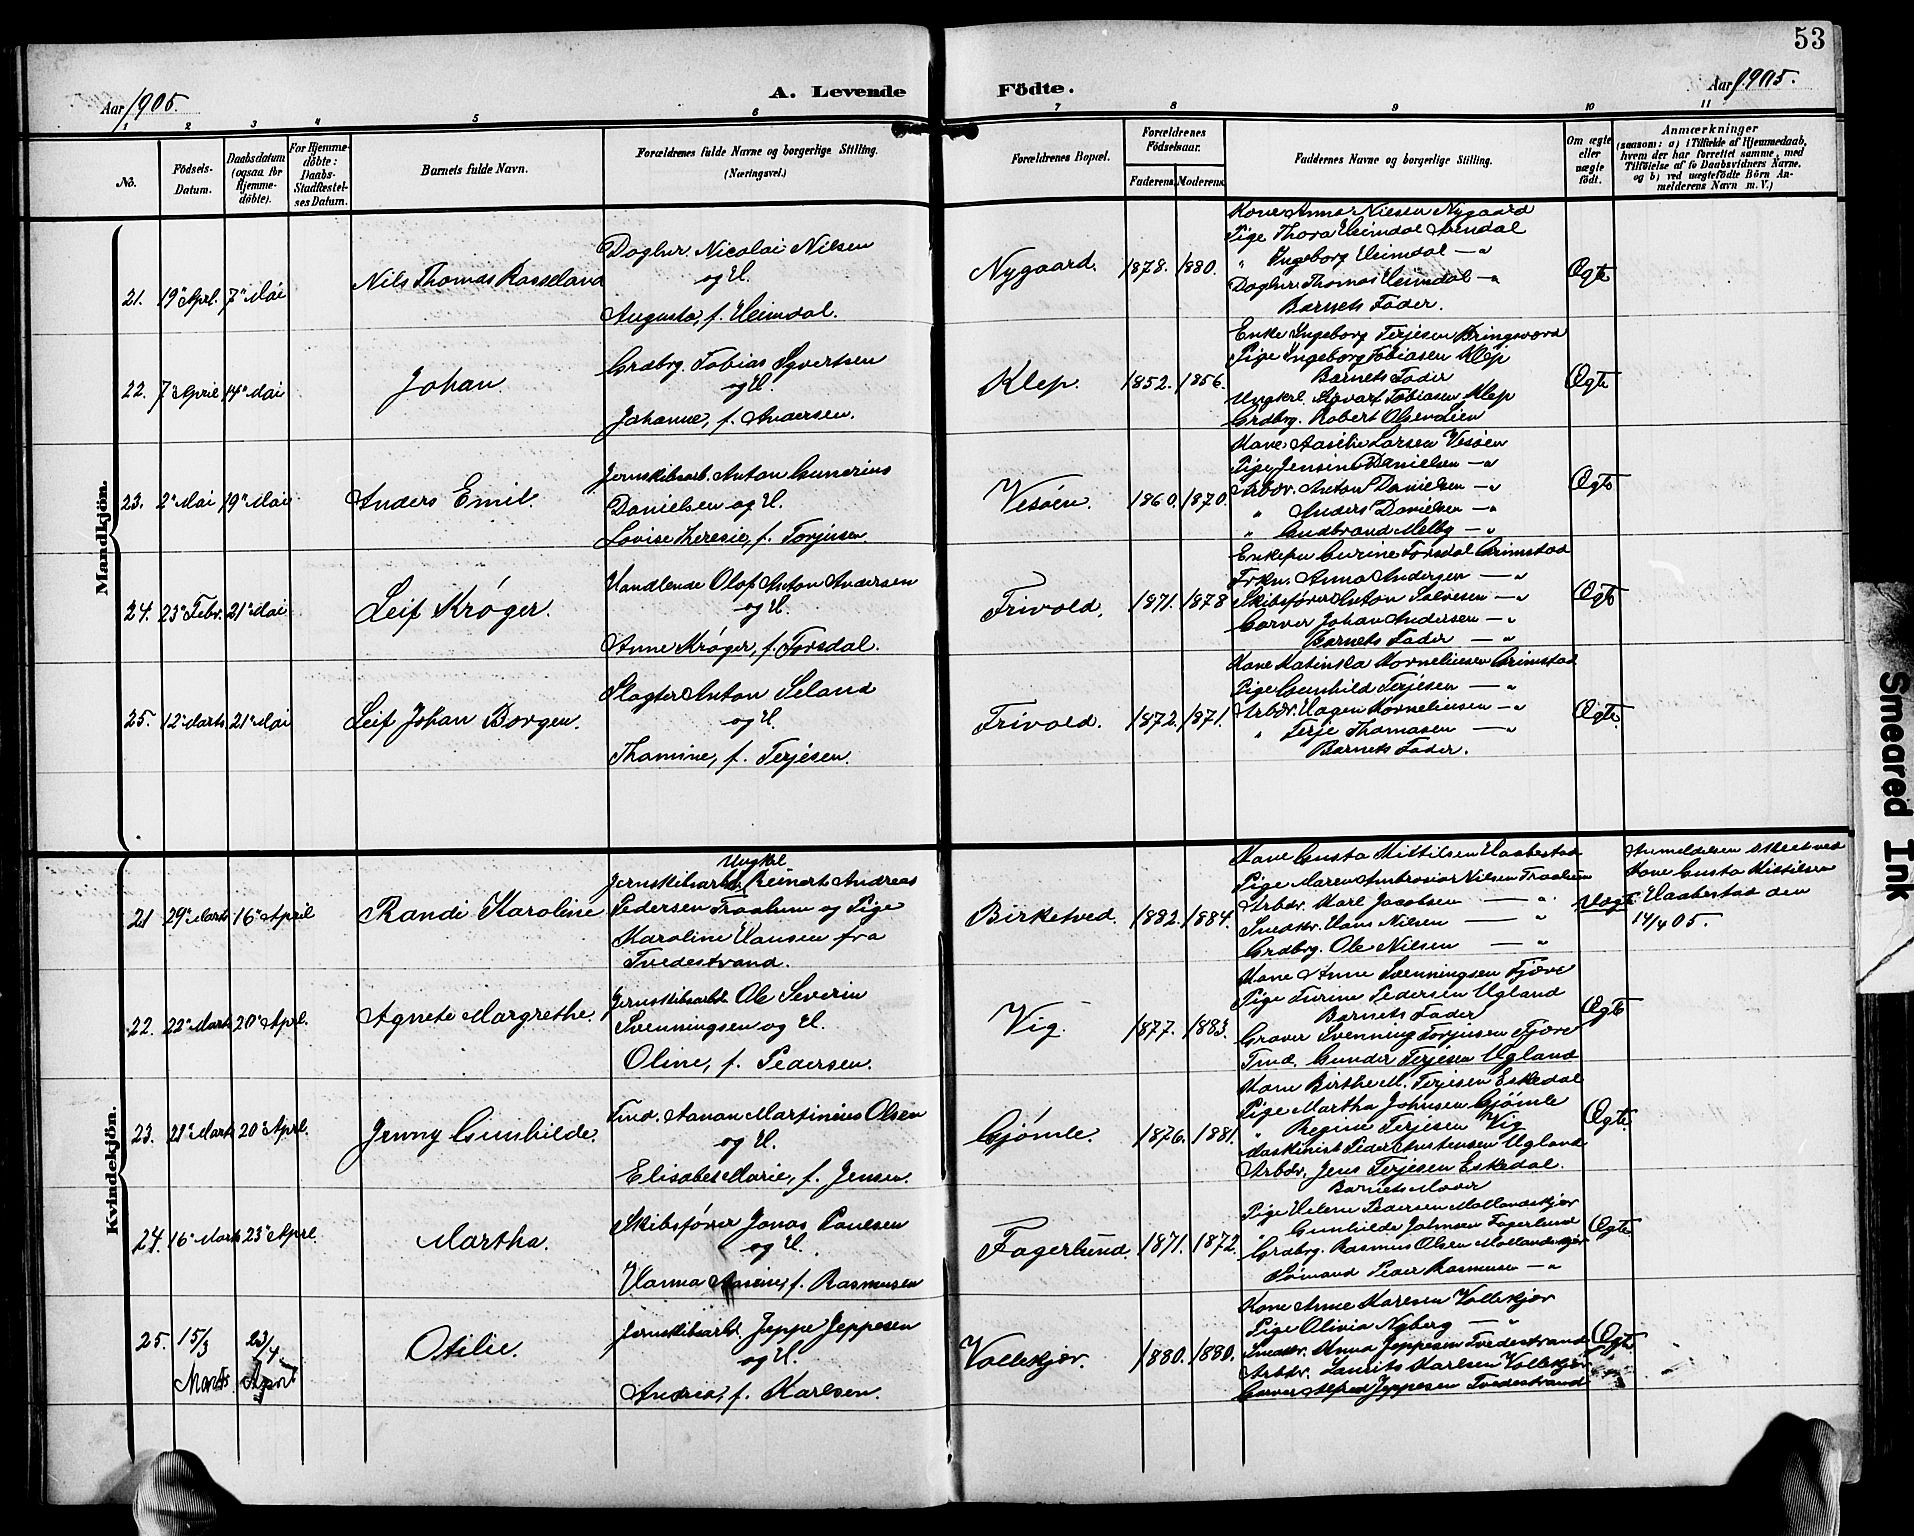 53
Aar 1905.
A. Levende
Födte.
Aar 1905.
1 2 3 4 5 6 7 8 9 10 11
No.
Födsels-Datum.
Daabsdatum (ogsaa for Hjemme-döbte).
For Hjemme-döbte: Daabs-Stadfæstel-ses Datum.
Barnets fulde Navn.
Forældrenes fulde Navne og borgerlige Stilling.
(Næringsvei.)
Forældrenes Bopæl.
Forældrenes Födselsaar.
Faderens.
Moderens.
Faddernes Navne og borgerlige Stilling.
Om ægte eller uægte födt.
Anmærkninger
(saasom: a) i Tilfælde af Hjemmedaab,
hvem der har forrettet samme, med
Tilföielse af to Daabsvidners Navne.
og b) ved uægtefödte Börn An-
melderens Navn m. V.)
Mandkjön.
21. 19de Aprl. 7de Mai
Nils Thomas Rosseland
Daglnr. Nicolai Nilsen
og H.
Augusta, f. Heimdal.
Nygaard. 1878. 1880.
Kone Anna Nilsen Nygaard
Pige Thora Heimdal Arendal
" Ingeborg Heimdal — "
Daglnr. Thomas Heimdal — "
Barnets Fader.
Ægte
22. 7de April 14de Mai
Johan.
Grdbrg. Tobias Syvertsen
og H.
Johanne, f. Andersen.
Klep. 1852. 1856.
Enke Ingeborg Terjesen Bringsvord
Pige Ingeborg Tobiasen Klep
Barnets Fader
Ungkrl. Syvart Tobiasen Klep
Grdbrg. Robert Olsen
Ægte
23. 2de Mai 19de Mai
Anders Emil.
Jernskibsarb. Anton Gunerius
Danielsen og H.
Lovise Theresie, f. Torjusen.
Vesøen. 1860. 1870.
Kone Aaselie Larsen Vesøen
Pige Jensine Danielsen — "
Arbdr. Anton Danielsen — "
" Anders Danielsen — "
" Gudbrand Melby — "
Ægte
24. 23de Febr. 21de Mai
Leif Krøger.
Handlende Olaf Anton Andersen
og H.
Anne Krøger, f. Torsdal.
Frivold. 1871. 1878
Enkefru Gurine Torsdal Grimstad
Frkn. Anna Andersen — "
Skibsfører Anton Salvesen — "
Garver Johan Andersen — "
Barnets Fader — "
Ægte
25. 12de Marts 21de Mai
Leif Johan Borgen.
Slagter Anton Seland
og H.
Thomine, f. Terjesen.
Frivold. 1872. 1871.
Kone Katinka Korneliusen Grimstad
Pige Gunhild Terjesen — "
Arbdr. Hagen Korneliusen — "
" Terje Thomasen — "
Barnets Fader.
Ægte
Kvindekjön.
21 29de Marts 16de April
Randi Karoline
Ungkl.
Jernskibsarb. Reinert Andreas
Pedersen Traalum og Pige
Karoline Hansen fra
Tvedestrand.
Birketved. 1882. 1884.
Kone Gusta Kittilsen Haabestad
Pige Maren Ambrosia Nilsen Traalum
Arbdr. Karl Jacobsen — "
Smedsv. Hans Nilsen — "
Grdbrg. Ole Nilsen — "
Uægte
Kone Gusta Kittilsen
Haabestad den
14/4 05.
22. 22de Marts 20de Aprl.
Agnete Margrethe.
Jernskibsarbdr. Ole Severin
Svenningsen og H.
Oline, f. Pedersen.
Vig. 1877. 1883.
Kone Anne Svenningsen Fjære
Pige Turine Pedersen Ugland
Barnets Fader
Graver Svenning Torjusen Fjære
Tmd. Gunder Terjesen Ugland
Ægte
23. 21de Marts 20de Aprl.
Jenny Gunhilde.
Tmd. Aanon Martinius Olsen
og H.
Elisabet Marie, f. Jensen.
Gjömle. 1876. 1881.
Kone Birthe M. Terjesen Eskedal
Pige Martha Johnsen Gjömle
" Regine Terjesen Vig
Maskinist Peder Christensen Ugland
Arbdr. Jens Terjesen Eskedal.
Ægte
24. 16de Marts 23de Aprl.
Martha.
Skibsfører Jonas Paulsen
og H.
Hanna Aasine, f. Rasmusen
Fagerlund. 1871. 1872.
Barnets Moder
Pige Helene Pedersen Mollandskjær
" Gunhilde Johnsen Fagerlund
Grdbrg. Rasmus Olsen Mollandskjær
Sömand Peder Rasmusen — "
Ægte
25. 15/3 23/4
Marts April
Otilie.
Jernskibsarbd. Jeppe Jeppesen
og H.
Andrea, f. Karlsen.
Vollekjær. 1880. 1880.
Kone Anne Karlsen Vollekjær
Pige Olivia Nyberg — "
Smedsv. Anna Jeppesen Tvedestrand
Arbdr. Laurits Karlsen Vollekjær
Garver Alfred Jeppesen Tvedestrand
Ægte
Smeared Ink